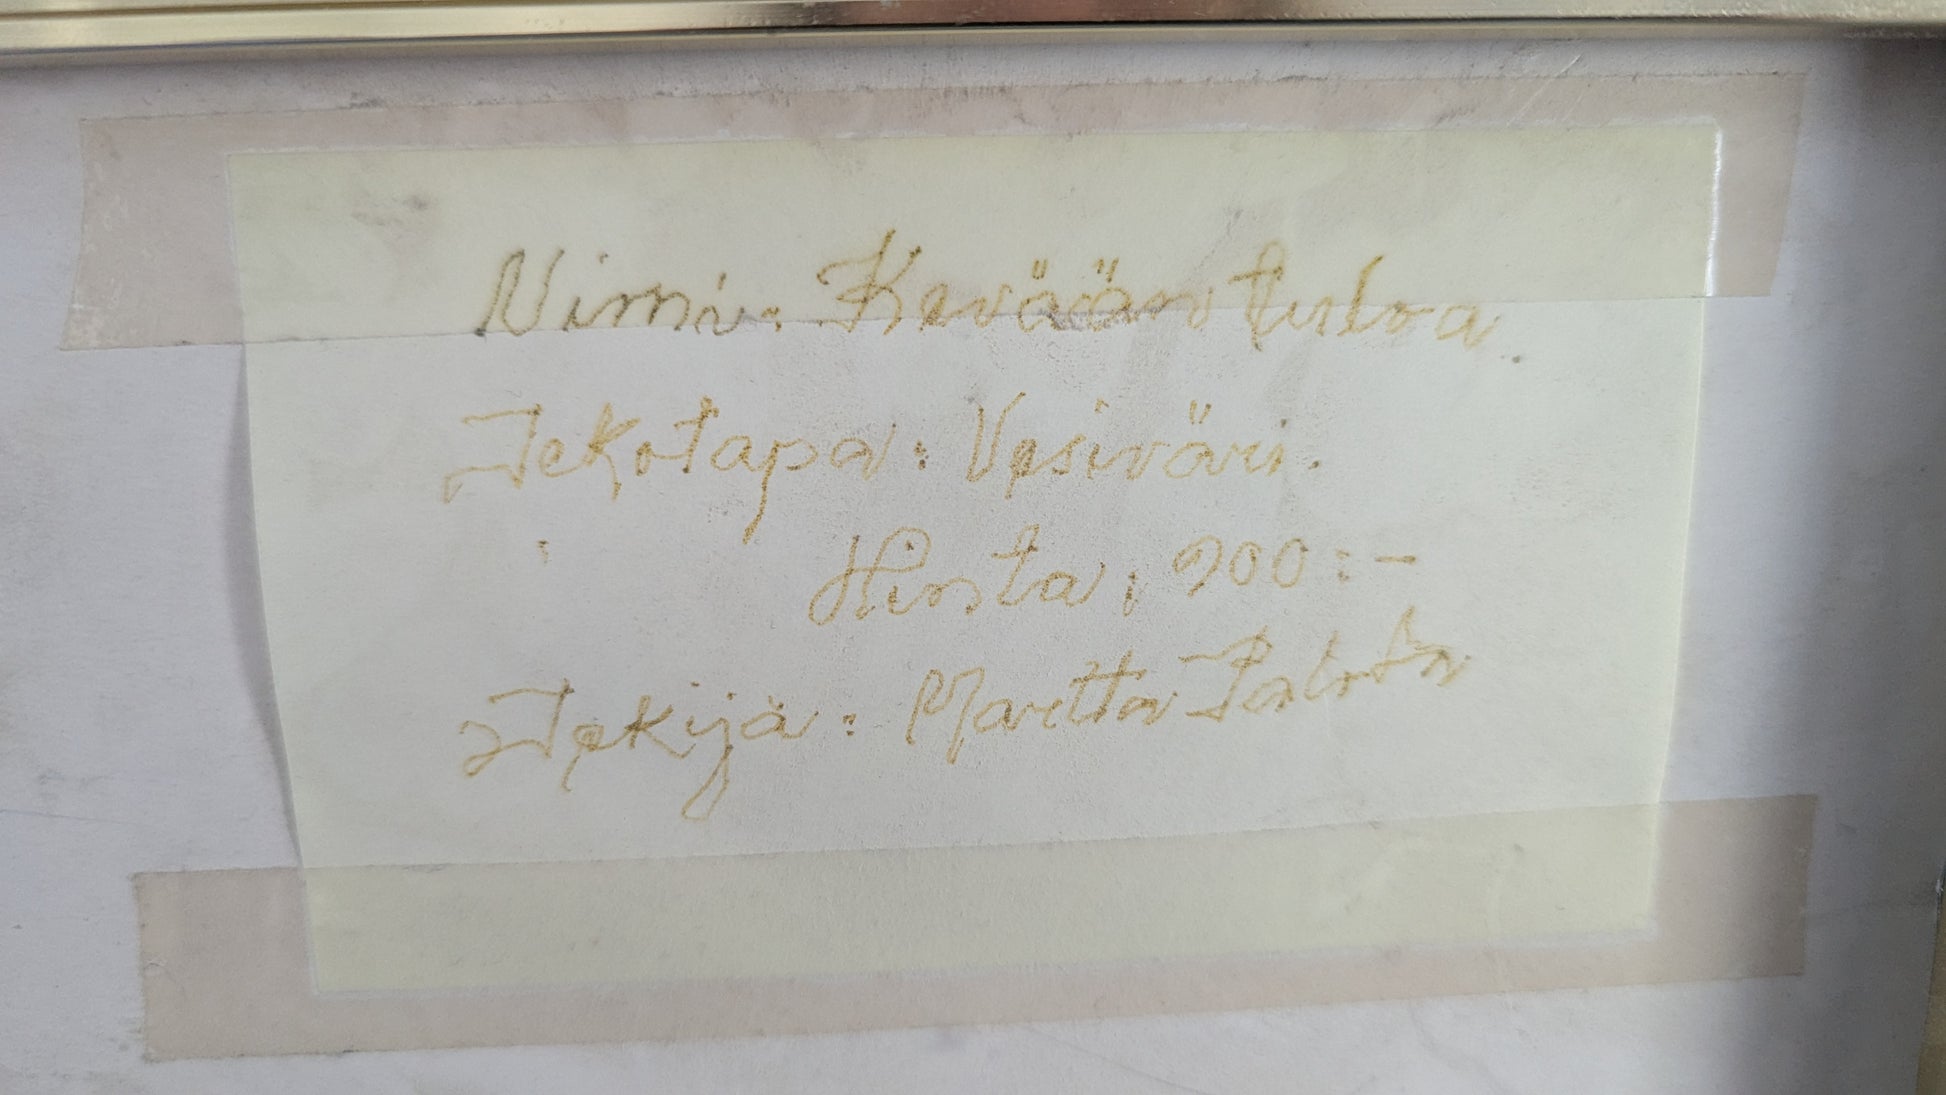 Nimi: Kevään tuloa.
Tekotapa: Vesiväri.
Hinta: 900:-
Tekijä: Martta